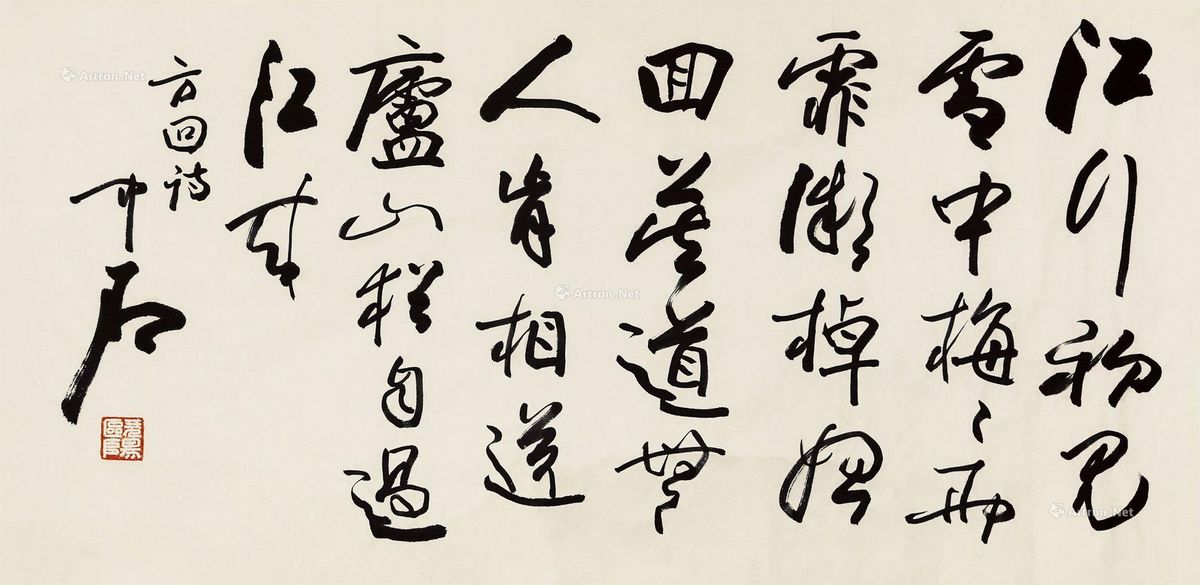 江行初見
雪中梅〻雨
霏微棹始
回莫道無
人肯相送
廬山猶自過
江来
方回詩
中石
Artron.Net
Artron.Net
Artron.Net